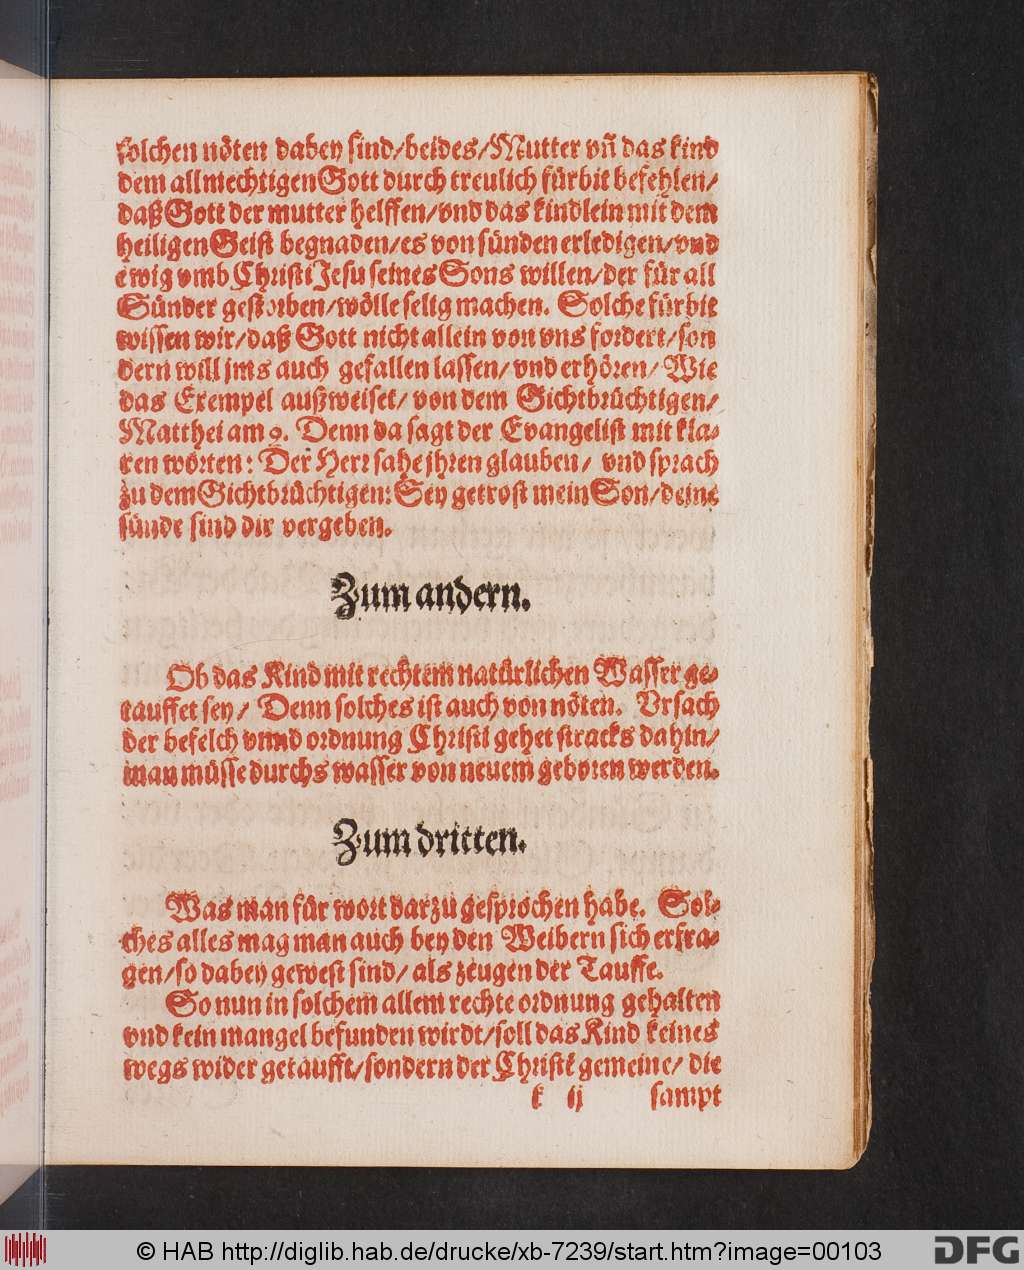 solchen nöten dabey sind/beides/Mutter vñ das kind
dem allmechtigen Gott durch treulich fürbit befehlen/
daß Gott der mutter helffen/vnd das kindlein mit dem
heiligen Geist begnaden/es von sünden erledigen/vnd
ewig vmb Christi Jesu seines Sons willen/der für all
Sünder gestorben/wölle selig machen. Solche fürbit
wissen wir/daß Gott nicht allein von vns fordert/son
dern will jms auch gefallen lassen/vnd erhören/Wie
das Exempel außweiset/von dem Gichtbrüchtigen/
Matthei am 9. Denn da sagt der Evangelist mit kla-
ren worten: Der Herr sahe jhren glauben/ vnd sprach
zu dem Gichtbrüchtigen: Sey getrost mein Son/deine
sünde sind dir vergeben.
Zum andern.
Ob das Kind mit rechtem natürlichen Wasser ge-
tauffet sey/ Denn solches ist auch von nöten. Vrsach
der befelch vnnd ordnung Christi gehet stracks dahin/
man müsse durchs wasser von neuem geboren werden.
Zum dritten.
Was man für wort darzu gesprochen habe. Sol-
ches alles mag man auch bey den Weibern sich erfra-
gen/so dabey gewest sind/als zeugen der Tauffe.
So nun in solchem allem rechte ordnung gehalten
vnd kein mangel befunden wirdt/soll das Kind keines
wegs wider getaufft/sondern der Christē gemeine/ die
k ij sampt
© HAB http://diglib.hab.de/drucke/xb-7239/start.htm?image=00103
DFG